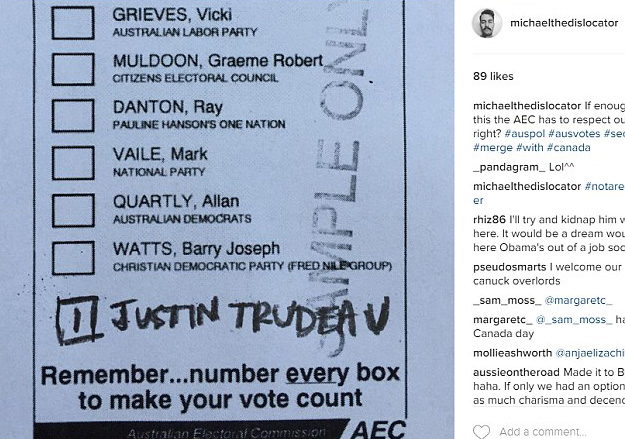 GRIEVES, Vicki
AUSTRALIAN LABOR PARTY
MULDOON, Graeme Robert
CITIZENS ELECTORAL COUNCIL
DANTON, Ray
PAULINE HANSON'S ONE NATION
VAILE, Mark
NATIONAL PARTY
QUARTLY, Allan
AUSTRALIAN DEMOCRATS
WATTS, Barry Joseph
CHRISTIAN DEMOCRATIC PARTY (FRED NILE GROUP)
SAMPLE ONLY
1 JUSTIN TRUDEAU
Remember...number every box
to make your vote count
Australian Electoral Commission AEC
michaelthedislocator
89 likes
michaelthedislocator If enoug
this the AEC has to respect ou
right? #auspol #ausvotes #sec
#merge #with #canada
_pandagram_ Lol^^
michaelthedislocator #notare
er
rhiz86 I'll try and kidnap him w
here. It would be a dream wou
here Obama's out of a job soc
pseudosmarts I welcome our
canuck overlords
_sam_moss_ @margaretc_
margaretc_ @_sam_moss_ ha
Canada day
mollieashworth @anjaelizachi
aussieontheroad Made it to B
haha. If only we had an option
as much charisma and decenc
Add a comment...